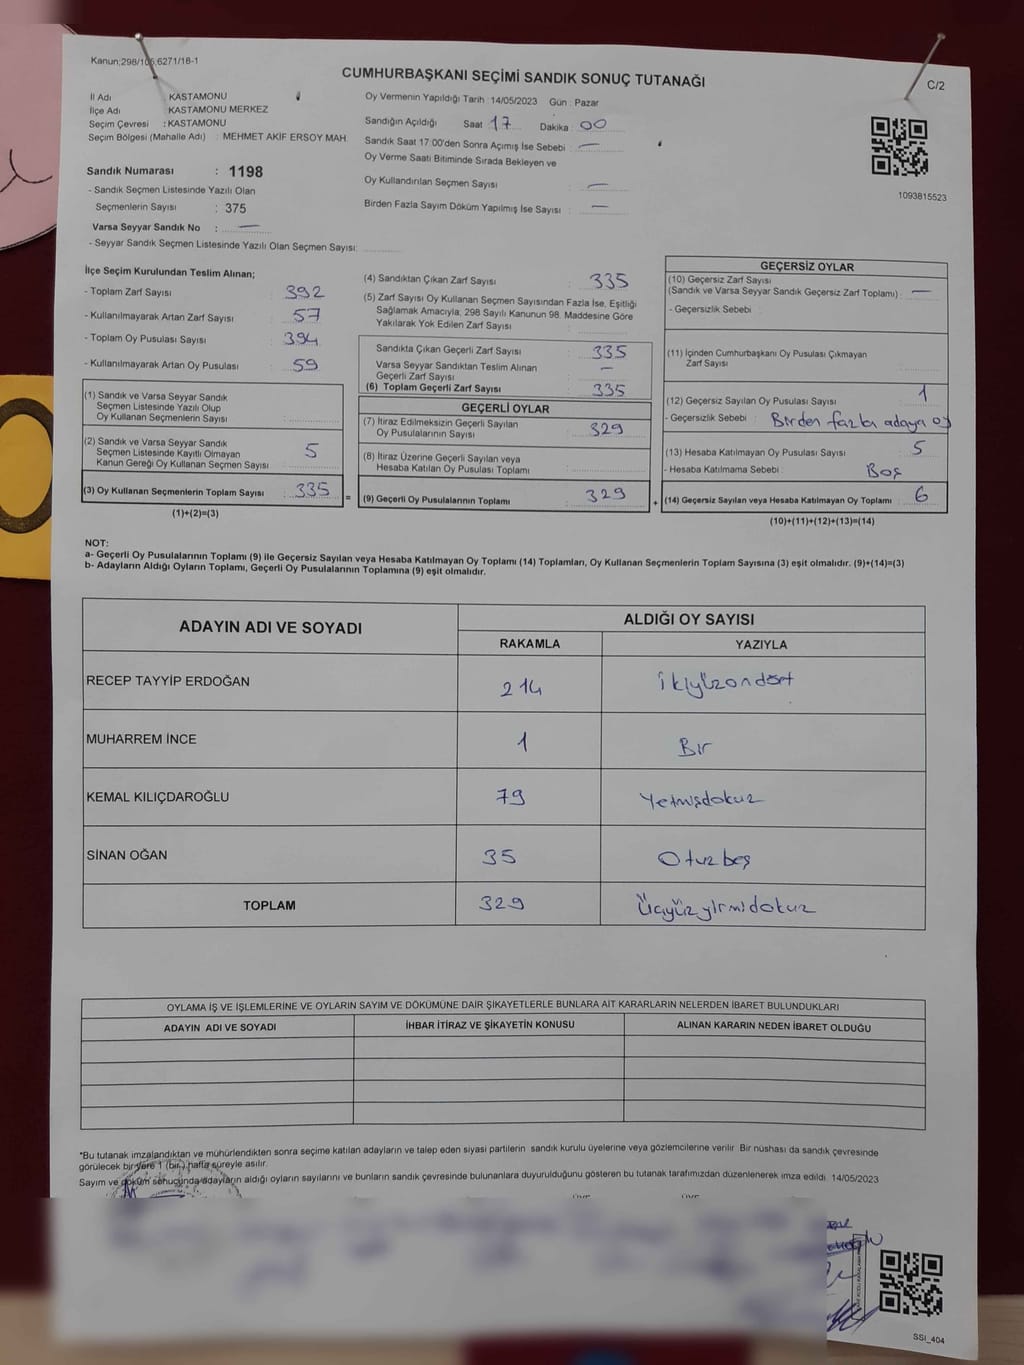 Kanun;298/105,6271/18-1
CUMHURBAŞKANI SEÇİMİ SANDIK SONUÇ TUTANAĞI
C/2
İl Adı KASTAMONU
İlçe Adı KASTAMONU MERKEZ
Seçim Çevresi : KASTAMONU
Seçim Bölgesi (Mahalle Adı) : MEHMET AKİF ERSOY MAH.
Sandık Numarası : 1198
- Sandık Seçmen Listesinde Yazılı Olan
Seçmenlerin Sayısı : 375
Varsa Seyyar Sandık No : —
- Seyyar Sandık Seçmen Listesinde Yazılı Olan Seçmen Sayısı:
Oy Vermenin Yapıldığı Tarih : 14/05/2023 Gün : Pazar
Sandığın Açıldığı Saat 17 Dakika : 00
Sandık Saat 17:00'den Sonra Açımış İse Sebebi : —
Oy Verme Saati Bitiminde Sırada Bekleyen ve
Oy Kullandırılan Seçmen Sayısı : —
Birden Fazla Sayım Döküm Yapılmış İse Sayısı : —
1093815523
İlçe Seçim Kurulundan Teslim Alınan;
- Toplam Zarf Sayısı : 392
- Kullanılmayarak Artan Zarf Sayısı : 57
- Toplam Oy Pusulası Sayısı : 394
- Kullanılmayarak Artan Oy Pusulası : 59
(1) Sandık ve Varsa Seyyar Sandık
Seçmen Listesinde Yazılı Olup
Oy Kullanan Seçmenlerin Sayısı :
(2) Sandık ve Varsa Seyyar Sandık
Seçmen Listesinde Kayıtlı Olmayan
Kanun Gereği Oy Kullanan Seçmen Sayısı : 5
(3) Oy Kullanan Seçmenlerin Toplam Sayısı : 335
(1)+(2)=(3)
=
(4) Sandıktan Çıkan Zarf Sayısı : 335
(5) Zarf Sayısı Oy Kullanan Seçmen Sayısından Fazla İse, Eşitliği
Sağlamak Amacıyla, 298 Sayılı Kanunun 98. Maddesine Göre
Yakılarak Yok Edilen Zarf Sayısı :
Sandıkta Çıkan Geçerli Zarf Sayısı : 335
Varsa Seyyar Sandıktan Teslim Alınan
Geçerli Zarf Sayısı : —
(6) Toplam Geçerli Zarf Sayısı : 335
GEÇERLİ OYLAR
(7) İtiraz Edilmeksizin Geçerli Sayılan
Oy Pusulalarının Sayısı : 329
(8) İtiraz Üzerine Geçerli Sayılan veya
Hesaba Katılan Oy Pusulası Toplamı :
(9) Geçerli Oy Pusulalarının Toplamı : 329
+
GEÇERSİZ OYLAR
(10) Geçersiz Zarf Sayısı
(Sandık ve Varsa Seyyar Sandık Geçersiz Zarf Toplamı) : —
- Geçersizlik Sebebi :
(11) İçinden Cumhurbaşkanı Oy Pusulası Çıkmayan
Zarf Sayısı :
(12) Geçersiz Sayılan Oy Pusulası Sayısı : 1
- Geçersizlik Sebebi : Birden fazla adaya oy
(13) Hesaba Katılmayan Oy Pusulası Sayısı : 5
- Hesaba Katılmama Sebebi : Boş
(14) Geçersiz Sayılan veya Hesaba Katılmayan Oy Toplamı : 6
(10)+(11)+(12)+(13)=(14)
NOT:
a- Geçerli Oy Pusulalarının Toplamı (9) ile Geçersiz Sayılan veya Hesaba Katılmayan Oy Toplamı (14) Toplamları, Oy Kullanan Seçmenlerin Toplam Sayısına (3) eşit olmalıdır. (9)+(14)=(3)
b- Adayların Aldığı Oyların Toplamı, Geçerli Oy Pusulalarının Toplamına (9) eşit olmalıdır.
ADAYIN ADI VE SOYADI ALDIĞI OY SAYISI
RAKAMLA YAZIYLA
RECEP TAYYİP ERDOĞAN 214 ikiyüzondört
MUHARREM İNCE 1 Bir
KEMAL KILIÇDAROĞLU 79 Yetmişdokuz
SİNAN OĞAN 35 Otuzbeş
TOPLAM 329 Üçyüzyirmidokuz
OYLAMA İŞ VE İŞLEMLERİNE VE OYLARIN SAYIM VE DÖKÜMÜNE DAİR ŞİKAYETLERLE BUNLARA AİT KARARLARIN NELERDEN İBARET BULUNDUKLARI
ADAYIN ADI VE SOYADI İHBAR İTİRAZ VE ŞİKAYETİN KONUSU ALINAN KARARIN NEDEN İBARET OLDUĞU
*Bu tutanak imzalandıktan ve mühürlendikten sonra seçime katılan adayların ve talep eden siyasi partilerin sandık kurulu üyelerine veya gözlemcilerine verilir. Bir nüshası da sandık çevresinde
görülecek bir yere 1 (bir) hafta süreyle asılır.
Sayım ve döküm sonucunda adayların aldığı oyların sayılarını ve bunların sandık çevresinde bulunanlara duyurulduğunu gösteren bu tutanak tarafımızdan düzenlenerek imza edildi. 14/05/2023
SSI_404